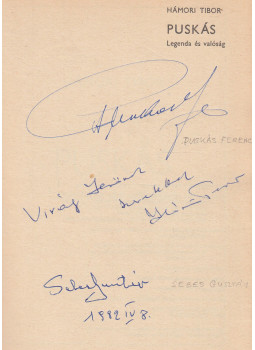 HÁMORI TIBOR
PUSKÁS
Legenda és valóság
PUSKÁS FERENC
Virág Jenőnek
Sebes Gusztáv
SEBES GUSZTÁV
1982 IV 8.